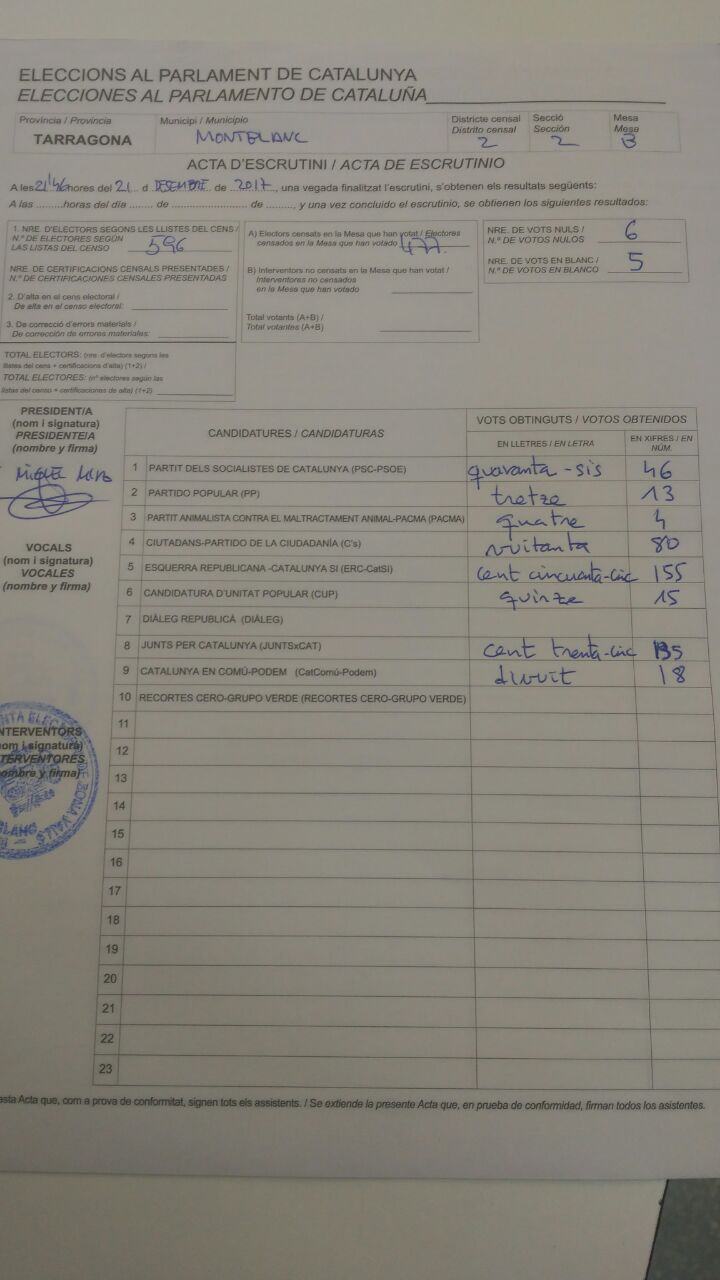 ELECCIONS AL PARLAMENT DE CATALUNYA
ELECCIONES AL PARLAMENTO DE CATALUÑA
Província / Provincia Municipi / Municipio Districte censal Secció Mesa
Distrito censal Sección Mesa
TARRAGONA MONTBLANC 2 2 B
ACTA D'ESCRUTINI / ACTA DE ESCRUTINIO
A les 21'46 hores del 21 d DESEMBRE de 2017, una vegada finalitzat l'escrutini, s'obtenen els resultats següents:
A las .........horas del día ............ de ..................... de ........., y una vez concluido el escrutinio, se obtienen los siguientes resultados:
1. NRE. D'ELECTORS SEGONS LES LLISTES DEL CENS /
N.º DE ELECTORES SEGÚN
LAS LISTAS DEL CENSO 596
NRE. DE CERTIFICACIONS CENSALS PRESENTADES /
N.º DE CERTIFICACIONES CENSALES PRESENTADAS
2. D'alta en el cens electoral /
De alta en el censo electoral:
3. De correcció d'errors materials /
De corrección de errores materiales:
TOTAL ELECTORS: (nre. d'electors segons les
llistes del cens + certificacions d'alta) (1+2) /
TOTAL ELECTORES: (nº electores según las
listas del censo + certificaciones de alta) (1+2)
A) Electors censats en la Mesa que han votat / Electores
censados en la Mesa que han votado 477
B) Interventors no censats en la Mesa que han votat /
Interventores no censados
en la Mesa que han votado
Total votants (A+B) /
Total votantes (A+B)
NRE. DE VOTS NULS /
N.º DE VOTOS NULOS 6
NRE. DE VOTS EN BLANC /
N.º DE VOTOS EN BLANCO 5
PRESIDENT/A
(nom i signatura)
PRESIDENTE/A
(nombre y firma)
MIQUEL
VOCALS
(nom i signatura)
VOCALES
(nombre y firma)
NTERVENTORS
nom i signatura)
TERVENTORES
ombre y firma)
CANDIDATURES / CANDIDATURAS VOTS OBTINGUTS / VOTOS OBTENIDOS
EN LLETRES / EN LETRA EN XIFRES / EN NÚM.
1 PARTIT DELS SOCIALISTES DE CATALUNYA (PSC-PSOE) quaranta-sis 46
2 PARTIDO POPULAR (PP) tretze 13
3 PARTIT ANIMALISTA CONTRA EL MALTRACTAMENT ANIMAL-PACMA (PACMA) quatre 4
4 CIUTADANS-PARTIDO DE LA CIUDADANÍA (C's) vuitanta 80
5 ESQUERRA REPUBLICANA -CATALUNYA SI (ERC-CatSí) cent cincuanta-cinc 155
6 CANDIDATURA D'UNITAT POPULAR (CUP) quinze 15
7 DIÀLEG REPUBLICÀ (DIÀLEG)
8 JUNTS PER CATALUNYA (JUNTSxCAT) cent trenta-cinc 135
9 CATALUNYA EN COMÚ-PODEM (CatComú-Podem) divuit 18
10 RECORTES CERO-GRUPO VERDE (RECORTES CERO-GRUPO VERDE)
11
12
13
14
15
16
17
18
19
20
21
22
23
esta Acta que, com a prova de conformitat, signen tots els assistents. / Se extiende la presente Acta que, en prueba de conformidad, firman todos los asistentes.